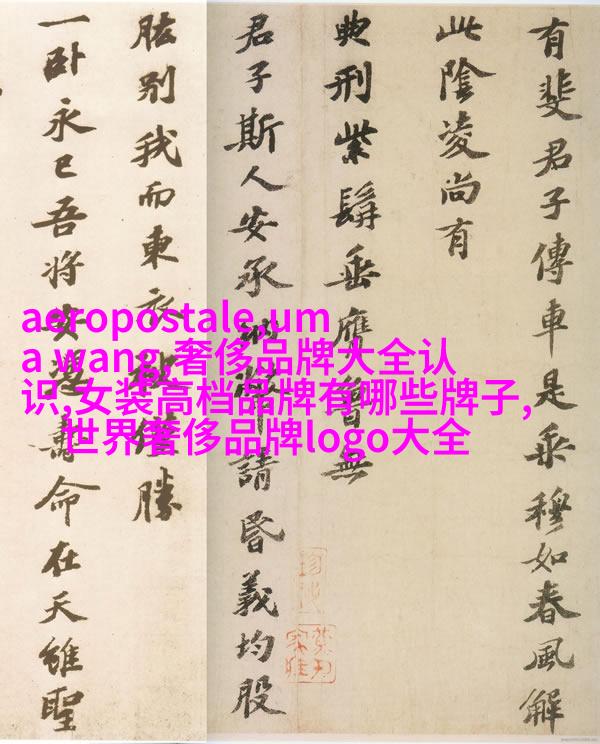 aeropostale,um
a wang,奢侈品牌大全认
识,女装高档品牌有哪些牌子,
世界奢侈品牌logo大全
有斐君子傳車是乘穆如春風解
此陰凌尚有
典刑紫髯垂膺魯無
君子斯人安承請昏義均股
肱別我而東衣袂勝
一卧永已吾將安壽命在天雖聖